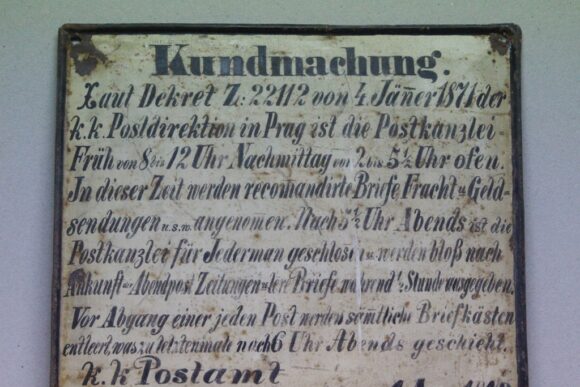 Kundmachung.
Laut Dekret Z: 22112 von 4. Jäñer 1871 der
k.k. Postdirektion in Prag ist die Postkanzlei
Früh von 8 bis 12 Uhr Nachmittag von 2 bis 5½ Uhr ofen.
In dieser Zeit werden recomandirte Briefe Fracht u. Geld-
sendungen u.s.w. angenom̄en. Nach 5½ Uhr Abends ist die
Postkanzlei für Jederman geschloſsen u. werden bloß nach
Ankunft der Abendpost Zeitungen u. Briefe während ½ Stunde ausgegeben.
Vor Abgang einer jeden Post werden säm̄tliche Briefkästen
entleert, was zu letztenmale nach 6 Uhr Abends geschieht.
k.k Postamt